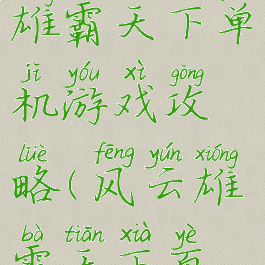 雄霸天下单
jī yóu xì gōng
机游戏攻
lüè fēng yún xióng
略(风云雄
bà tiān xià yè